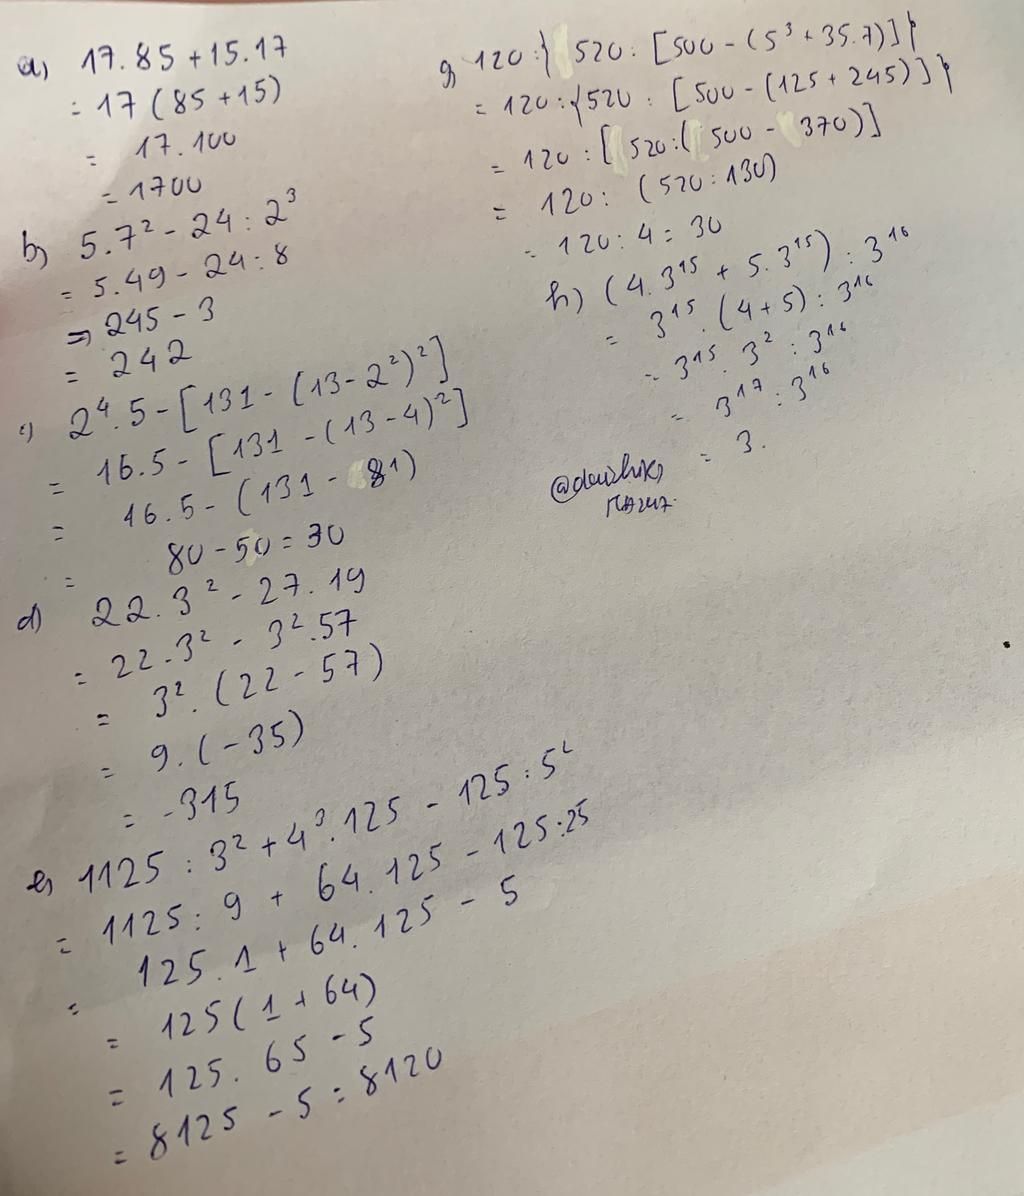 a) 17.85 + 15.17
= 17 (85 + 15)
= 17.100
= 1700
b) 5.7² - 24 : 2³
= 5.49 - 24 : 8
= 245 - 3
= 242
c) 2⁴.5 - [131 - (13 - 2²)²]
= 16.5 - [131 - (13 - 4)²]
= 16.5 - (131 - 81)
= 80 - 50 = 30
d) 22.3² - 27.19
= 22.3² - 3².57
= 3².(22 - 57)
= 9.(-35)
= -315
e) 1125 : 3² + 4³.125 - 125 : 5²
= 1125 : 9 + 64.125 - 125:25
= 125.1 + 64.125 - 5
= 125(1 + 64)
= 125.65 - 5
= 8125 - 5 = 8120
g) 120:{520 : [500 - (5³ + 35.7)]}
= 120:{520 : [500 - (125 + 245)]}
= 120 : [520:(500 - 370)]
= 120: (520:130)
= 120: 4 = 30
h) (4.3¹⁵ + 5.3¹⁵) : 3¹⁶
= 3¹⁵.(4+5) : 3¹⁶
= 3¹⁵.3² : 3¹⁶
= 3¹⁷ : 3¹⁶
= 3.